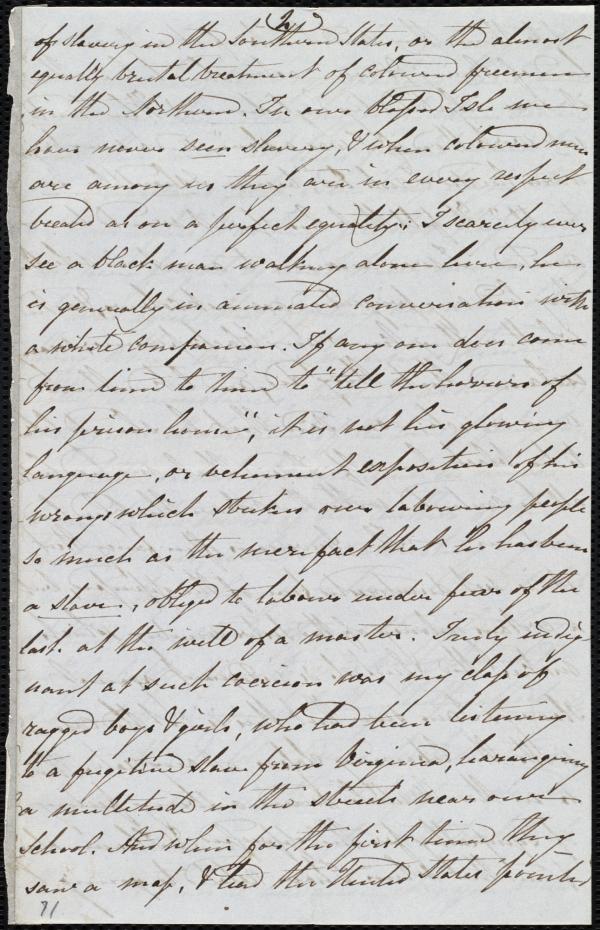 2
of slavery in the Southern States, or the almost
equally brutal treatment of coloured freemen
in the Northern. In our blessed Isle we
have never seen slavery, & when coloured men
are among us they are in every respect
treated as on a perfect equality; I scarcely ever
see a black man walking alone here, he
is generally in animated conversation with
a white companion. If any one does come
from time to time to "tell the horrors of
his prison house", it is not his glowing
language, or vehement exposition of his
wrongs which strikes our labouring people
so much as the mere fact that he has been
a slave, obliged to labour under fear of the
lash at the will of a master. Truly indig
nant at such coercion was my class of
ragged boys & girls, who had been listening
to a fugitive slave from Virginia, haranguing
a multitude in the streets near our
school. And when for the first time they
saw a map, & had the United States pointed
71